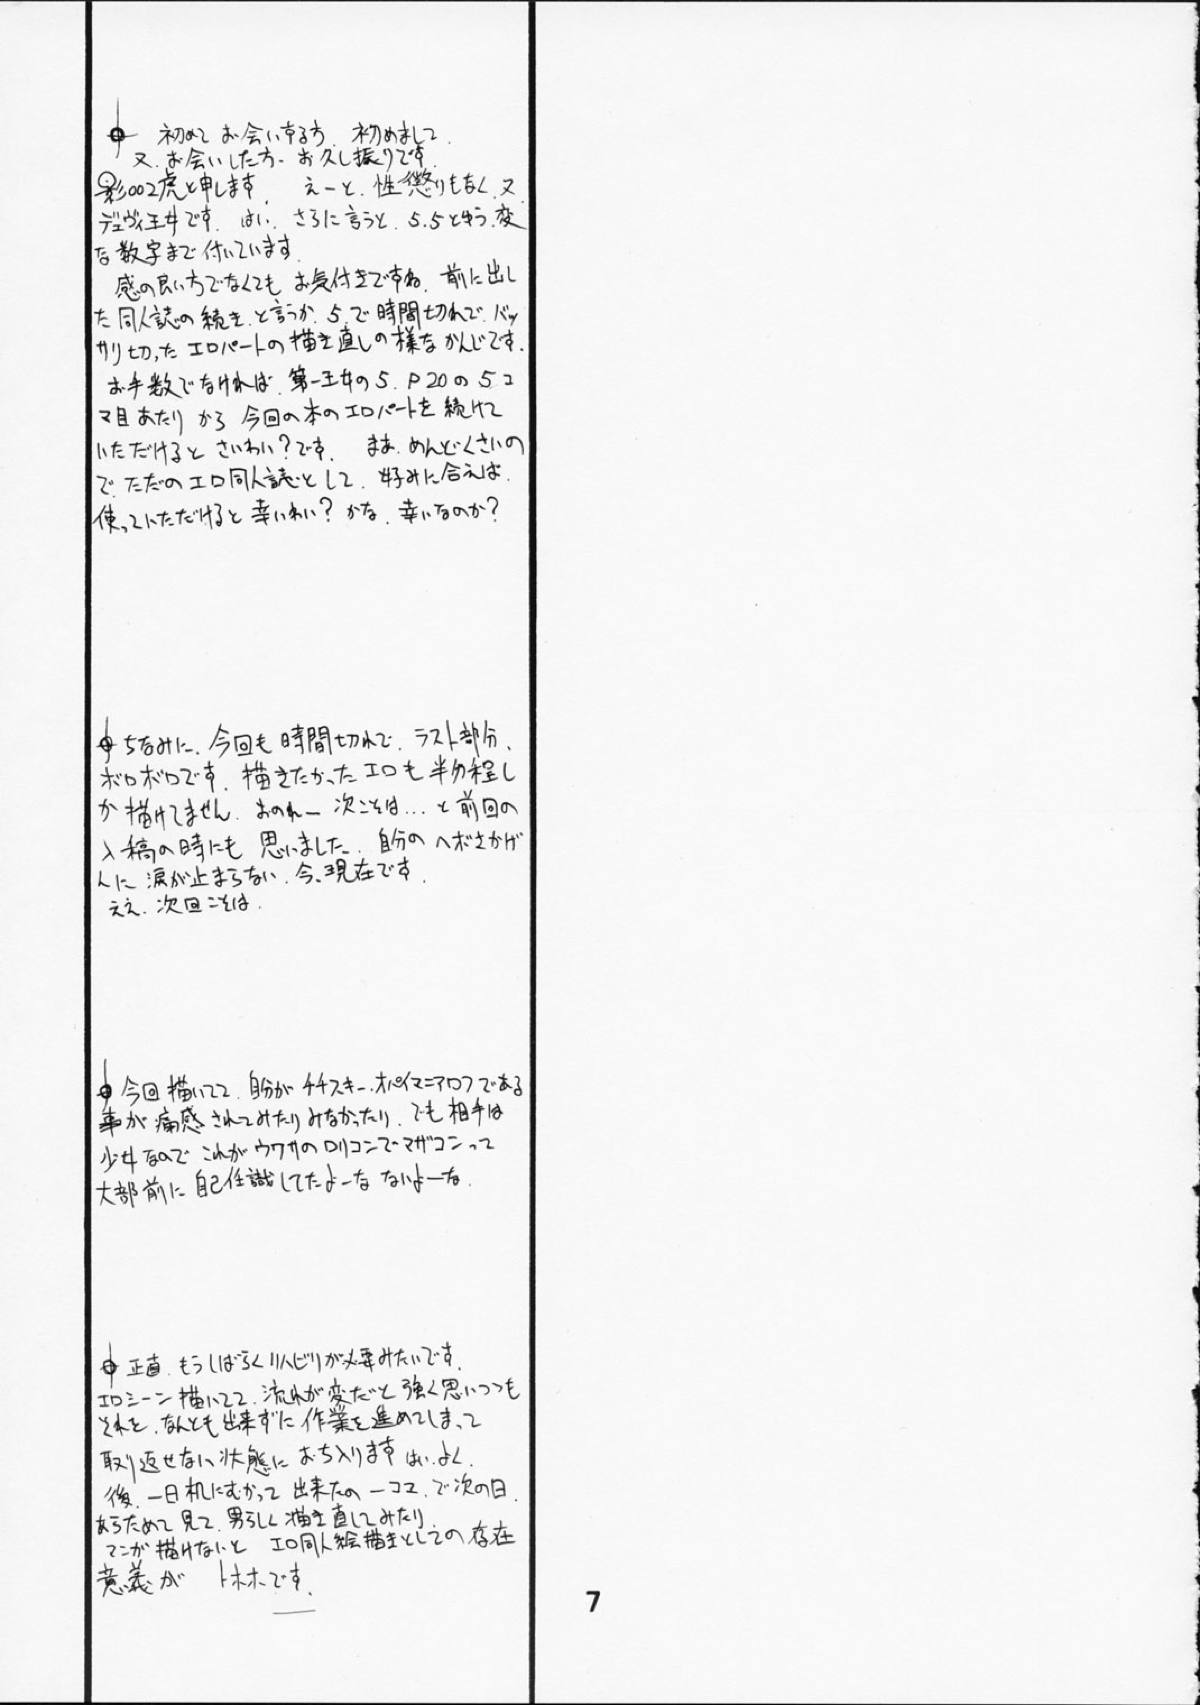 初めて お会いする方、初めまして、
又、お会いした方、お久し振りです。
影002虎と申します。 えーと、性懲りもなく、又
デュヴィ王女です。はい、さらに言うと、5.5とゆう、変
な数字まで付いています。
感の良い方でなくても お気付きですね、前に出し
た同人誌の続き、と言うか、5.で時間切れで、バッ
サリ切った エロパートの描き直しの様な かんじです。
お手数でなければ、第一王女の5. P20の5コ
マ目あたり から 今回の本のエロパートを続けて
いただけると さいわい?です。 まあ、めんどくさいの
で、ただのエロ同人誌として、好みに合えば、
使っていただけると 幸いわい? かな、幸いなのか?
ちなみに、今回も時間切れで、ラスト部分、
ボロボロです。描きたかったエロも半分程し
か描けてません。おのれー 次こそは... と前回の
入稿の時にも 思いました。自分のヘボさかげ
んに 涙が止まらない、今、現在です。
ええ、次回こそは、
今回描いてて、自分が チチスキー、オパイマニアロフである
事が痛感されてみたりみなかったり、でも相手は
少女なので これがウワサのロリコンでマザコンって
大部前に 自己任識してたよーな ないよーな。
正直、もうしばらくリハビリが必要みたいです。
エロシーン描いてて、流れが変だと 強く思いつつも
それを、なんとも出来ずに 作業を進めてしまって
取り返せない状態に おち入ります はい、よく、
後、一日机にむかって 出来たの一コマ、で次の日、
あらためて見て、男らしく描き直してみたり、
マンが描けないと エロ同人絵描きとしての存在
意義が トホホです。
7